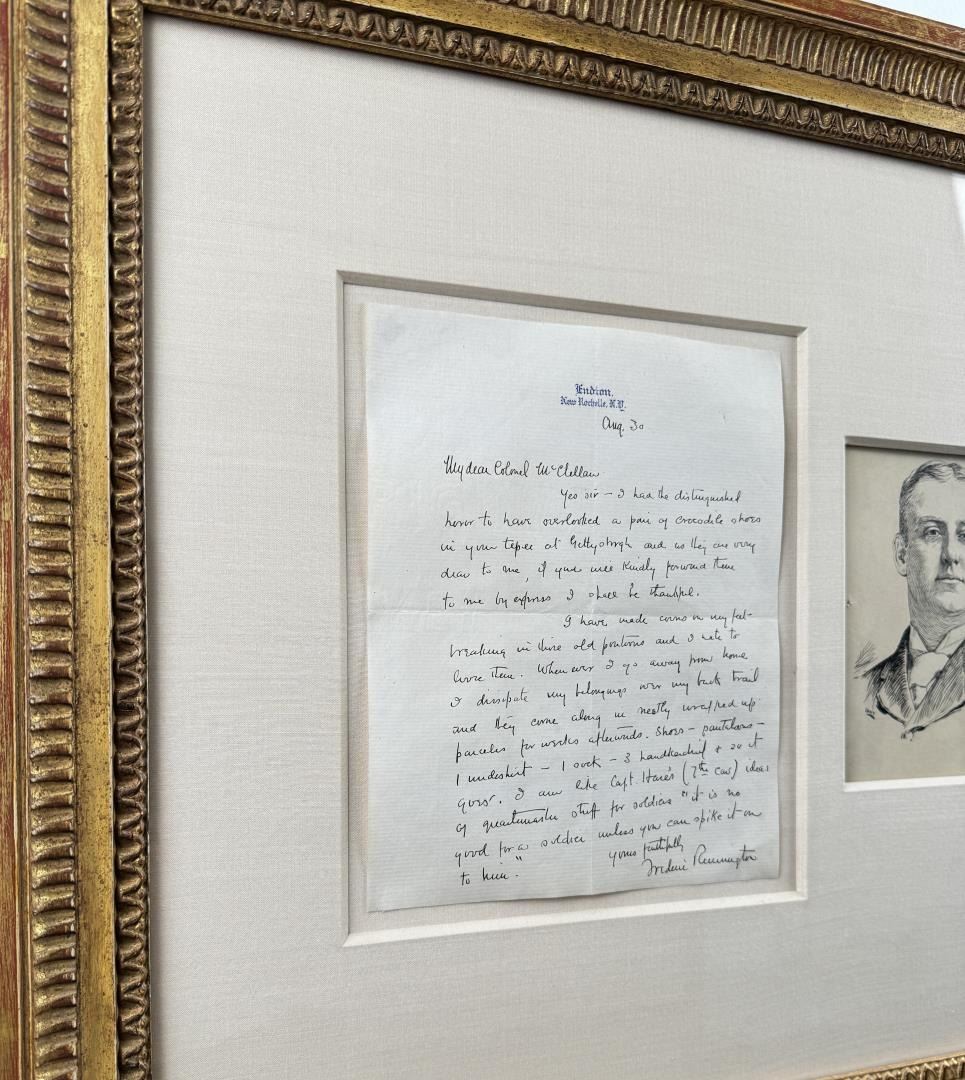 Endion,
New Rochelle, N.Y.
Aug. 30
My dear Colonel McClellan
Yes sir — I had the distinguished
honor to have overlooked a pair of crocodile shoes
in your tepee at Gettysburgh and as they are very
dear to me, if you will kindly forward them
to me by express I shall be thankful.
I have made corns on my feet
breaking in those old pontoons and I hate to
loose them. Whenever I go away from home
I dissipate my belongings over my back trail
and they come along in neatly wrapped up
parcels for weeks afterwards. Shoes — pantaloons —
1 undershirt — 1 sock — 3 handkerchief & so it
goes. I am like Capt. Hare's (7th Cav) ideas
of quartermaster stuff for soldiers "it is no
good for a soldier unless you can spike it on
to him."
Yours faithfully
Frederic Remington